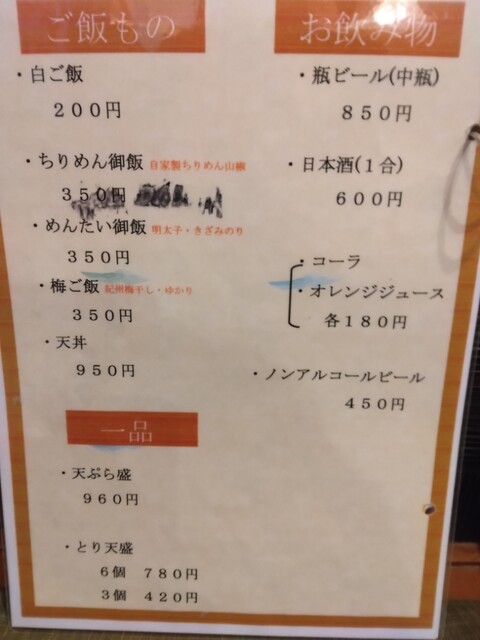 ご飯もの
・白ご飯
200円
・ちりめん御飯 自家製ちりめん山椒
350円
・めんたい御飯 明太子・きざみのり
350円
・梅ご飯 紀州梅干し・ゆかり
350円
・天丼
950円
一品
・天ぷら盛
960円
・とり天盛
6個 780円
3個 420円
お飲み物
・瓶ビール(中瓶)
850円
・日本酒(1合)
600円
・コーラ
・オレンジジュース
各180円
・ノンアルコールビール
450円